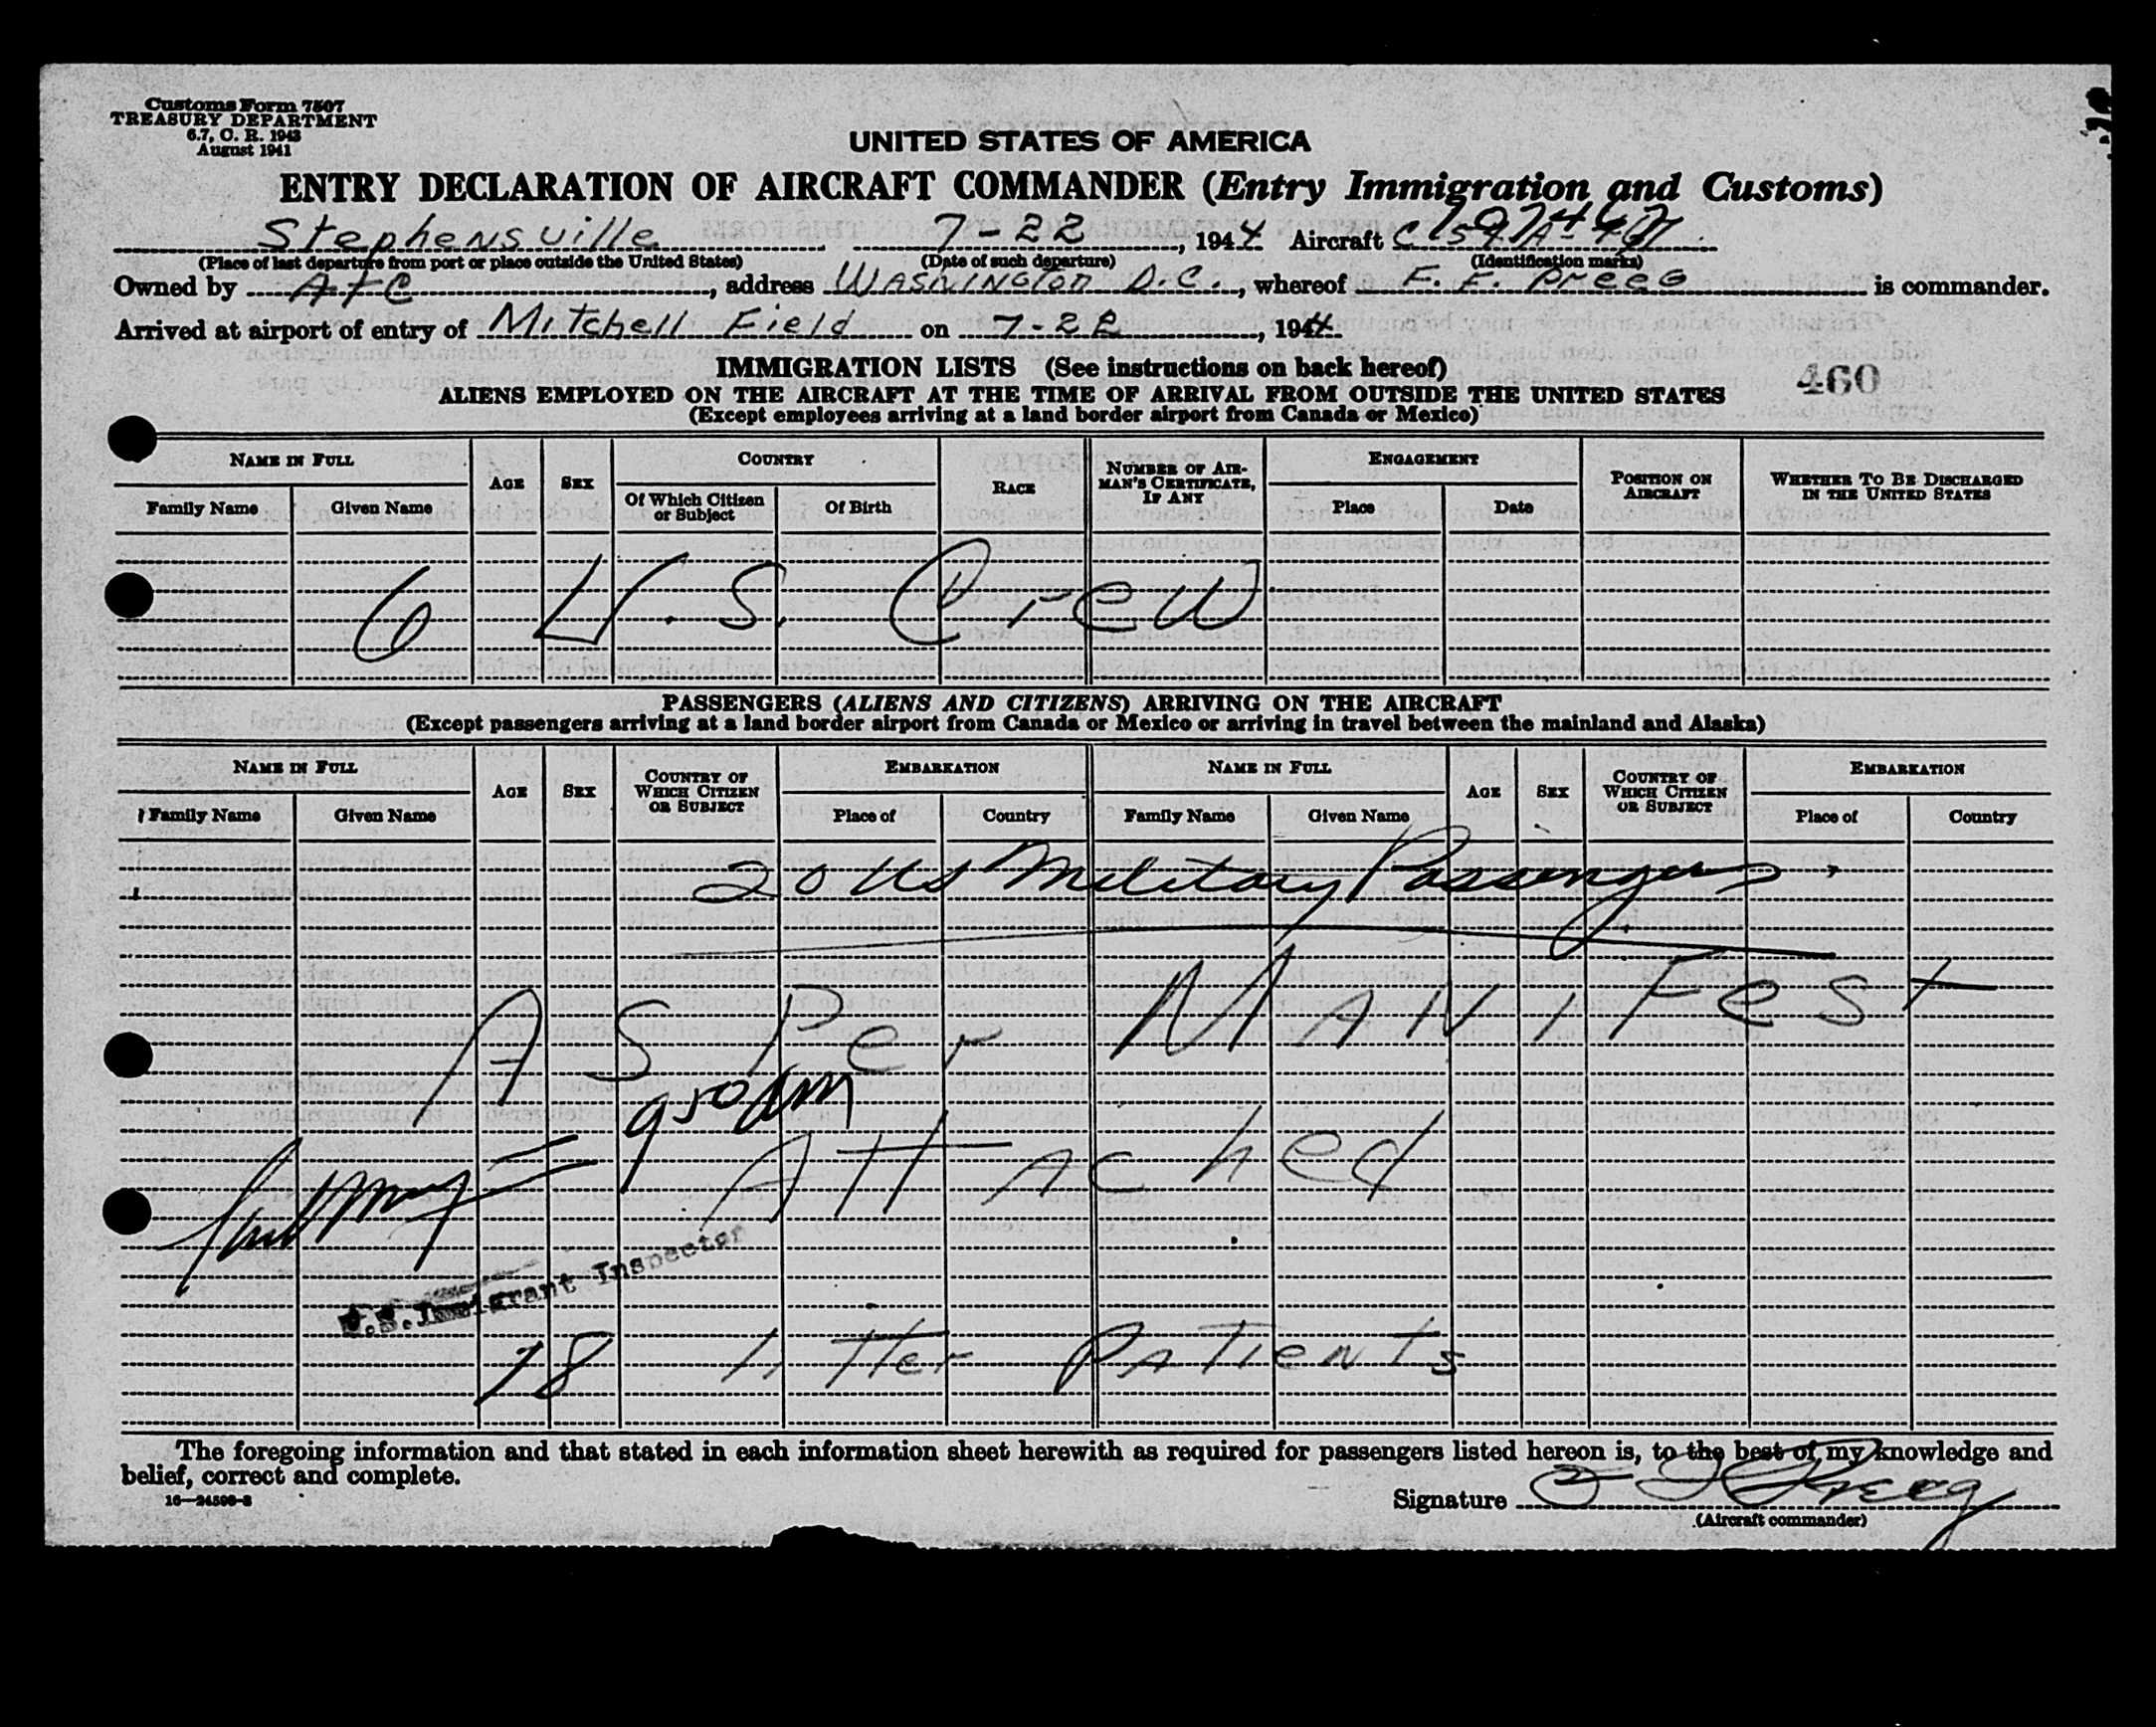 Customs Form 7507
TREASURY DEPARTMENT
6.7, C. R. 1943
August 1941
UNITED STATES OF AMERICA
ENTRY DECLARATION OF AIRCRAFT COMMANDER (Entry Immigration and Customs)
Stephensville 7-22, 1944 Aircraft C
(Place of last departure from port or place outside the United States) (Date of such departure) (Identification marks)
Owned by ATC, address WASHINGTON D.C., whereof F. F. Preeg is commander.
Arrived at airport of entry of Mitchell Field on 7-22, 1944
IMMIGRATION LISTS (See instructions on back hereof)
460
ALIENS EMPLOYED ON THE AIRCRAFT AT THE TIME OF ARRIVAL FROM OUTSIDE THE UNITED STATES
(Except employees arriving at a land border airport from Canada or Mexico)
NAME IN FULL AGE SEX COUNTRY RACE NUMBER OF AIRMAN'S CERTIFICATE, IF ANY ENGAGEMENT POSITION ON AIRCRAFT WHETHER TO BE DISCHARGED IN THE UNITED STATES
Family Name Given Name Of Which Citizen or Subject Of Birth Place Date
6 U.S. Crew
PASSENGERS (ALIENS AND CITIZENS) ARRIVING ON THE AIRCRAFT
(Except passengers arriving at a land border airport from Canada or Mexico or arriving in travel between the mainland and Alaska)
NAME IN FULL AGE SEX COUNTRY OF WHICH CITIZEN OR SUBJECT EMBARKATION NAME IN FULL AGE SEX COUNTRY OF WHICH CITIZEN OR SUBJECT EMBARKATION
Family Name Given Name Place of Country Family Name Given Name Place of Country
20 US Military Passengers
AS Per MANIFest
950 AM
ATTAChed
U.S. Immigrant Inspector
18 litter PATients
The foregoing information and that stated in each information sheet herewith as required for passengers listed hereon is, to the best of my knowledge and
belief, correct and complete.
16—24598-2
Signature F F Preeg
(Aircraft commander)